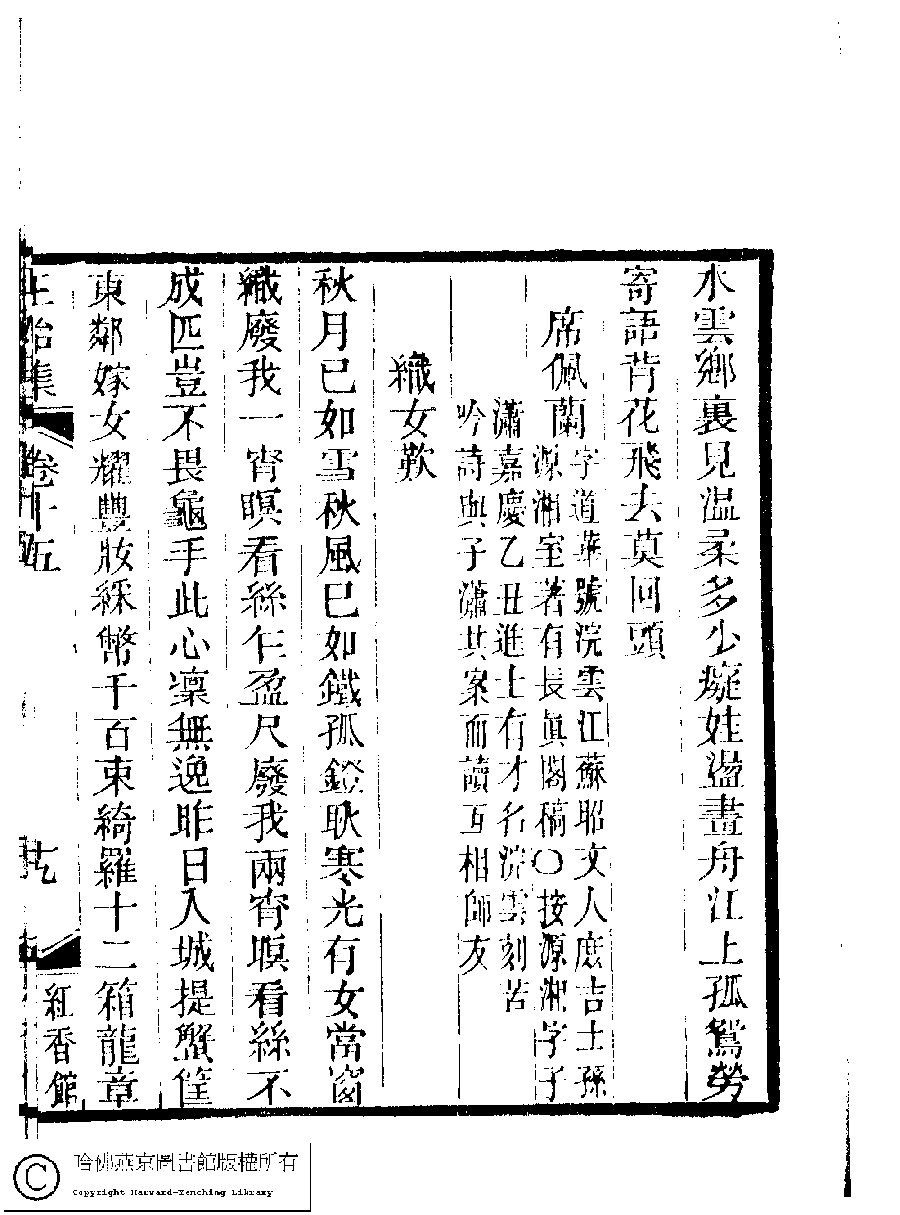 水雲鄉裏見温柔多少癡娃盪畫舟江上孤鴛勞
寄語背花飛去莫回頭
席佩蘭字道華號浣雲江蘇昭文人庶吉士孫
源湘室著有長眞閣稿○按源湘字子
瀟嘉慶乙丑進士有才名浣雲刻苦
吟詩與子瀟共案而讀互相師友
織女歎
秋月已如雪秋風已如鐵孤鐙耿寒光有女當窗
織廢我一宵瞑看絲仨盈尺廢我兩宵瞑看絲不
成匹豈不畏龜手此心凛無逸昨日入城提蟹筐
東鄰嫁女耀豐妝綵幣千百束綺羅十二箱龍章
正始集
卷十五
紅香館
哈佛燕京圖書館版權所有
Copyright Harvard-Yenching Library